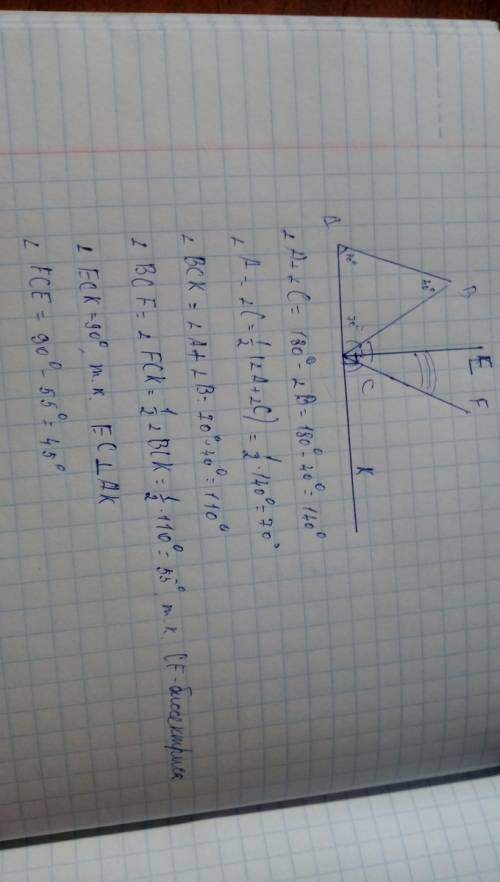 A
B
E
F
C
K
70°
40°
70°
∠A+∠C = 180° - ∠B = 180° - 40° = 140°
∠A = ∠C = 1/2 (∠A+∠C) = 1/2 · 140° = 70°
∠BCK = ∠A + ∠B = 70° + 40° = 110°
∠BCF = ∠FCK = 1/2 ∠BCK = 1/2 · 110° = 55° т.к. CF - биссектриса
∠ECK = 90°, т.к. EC ⊥ AK
∠FCE = 90° - 55° = 45°